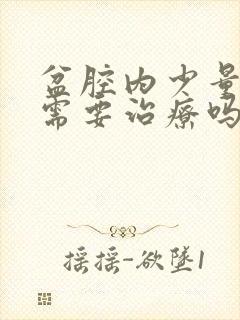 盆腔内少量
需要治疗吗
摇摇-欲墜1